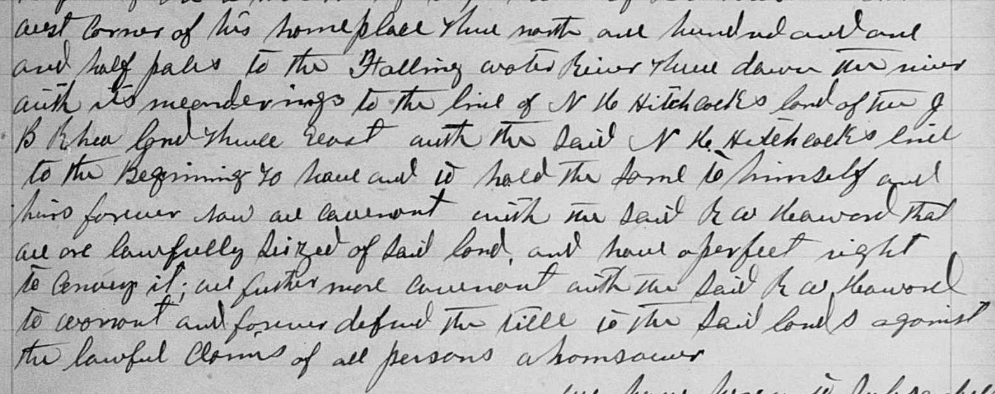 west corner of his homeplace thence north one hundred and one
and half poles to the Falling water River thence down the river
with its meanderings to the line of N H Hitchcocks land of the J
B Rhea land thence East with the said N H Hitchcocks line
to the Beginning to have and to hold the same to himself and
heirs forever now we covenant with the said R W Haword that
we are lawfully seized of said land, and have a perfect right
to convey it; we further more covenant with the said R W Haword
to warrant and forever defend the title to the said lands against
the lawful claims of all persons whomsoever
we have